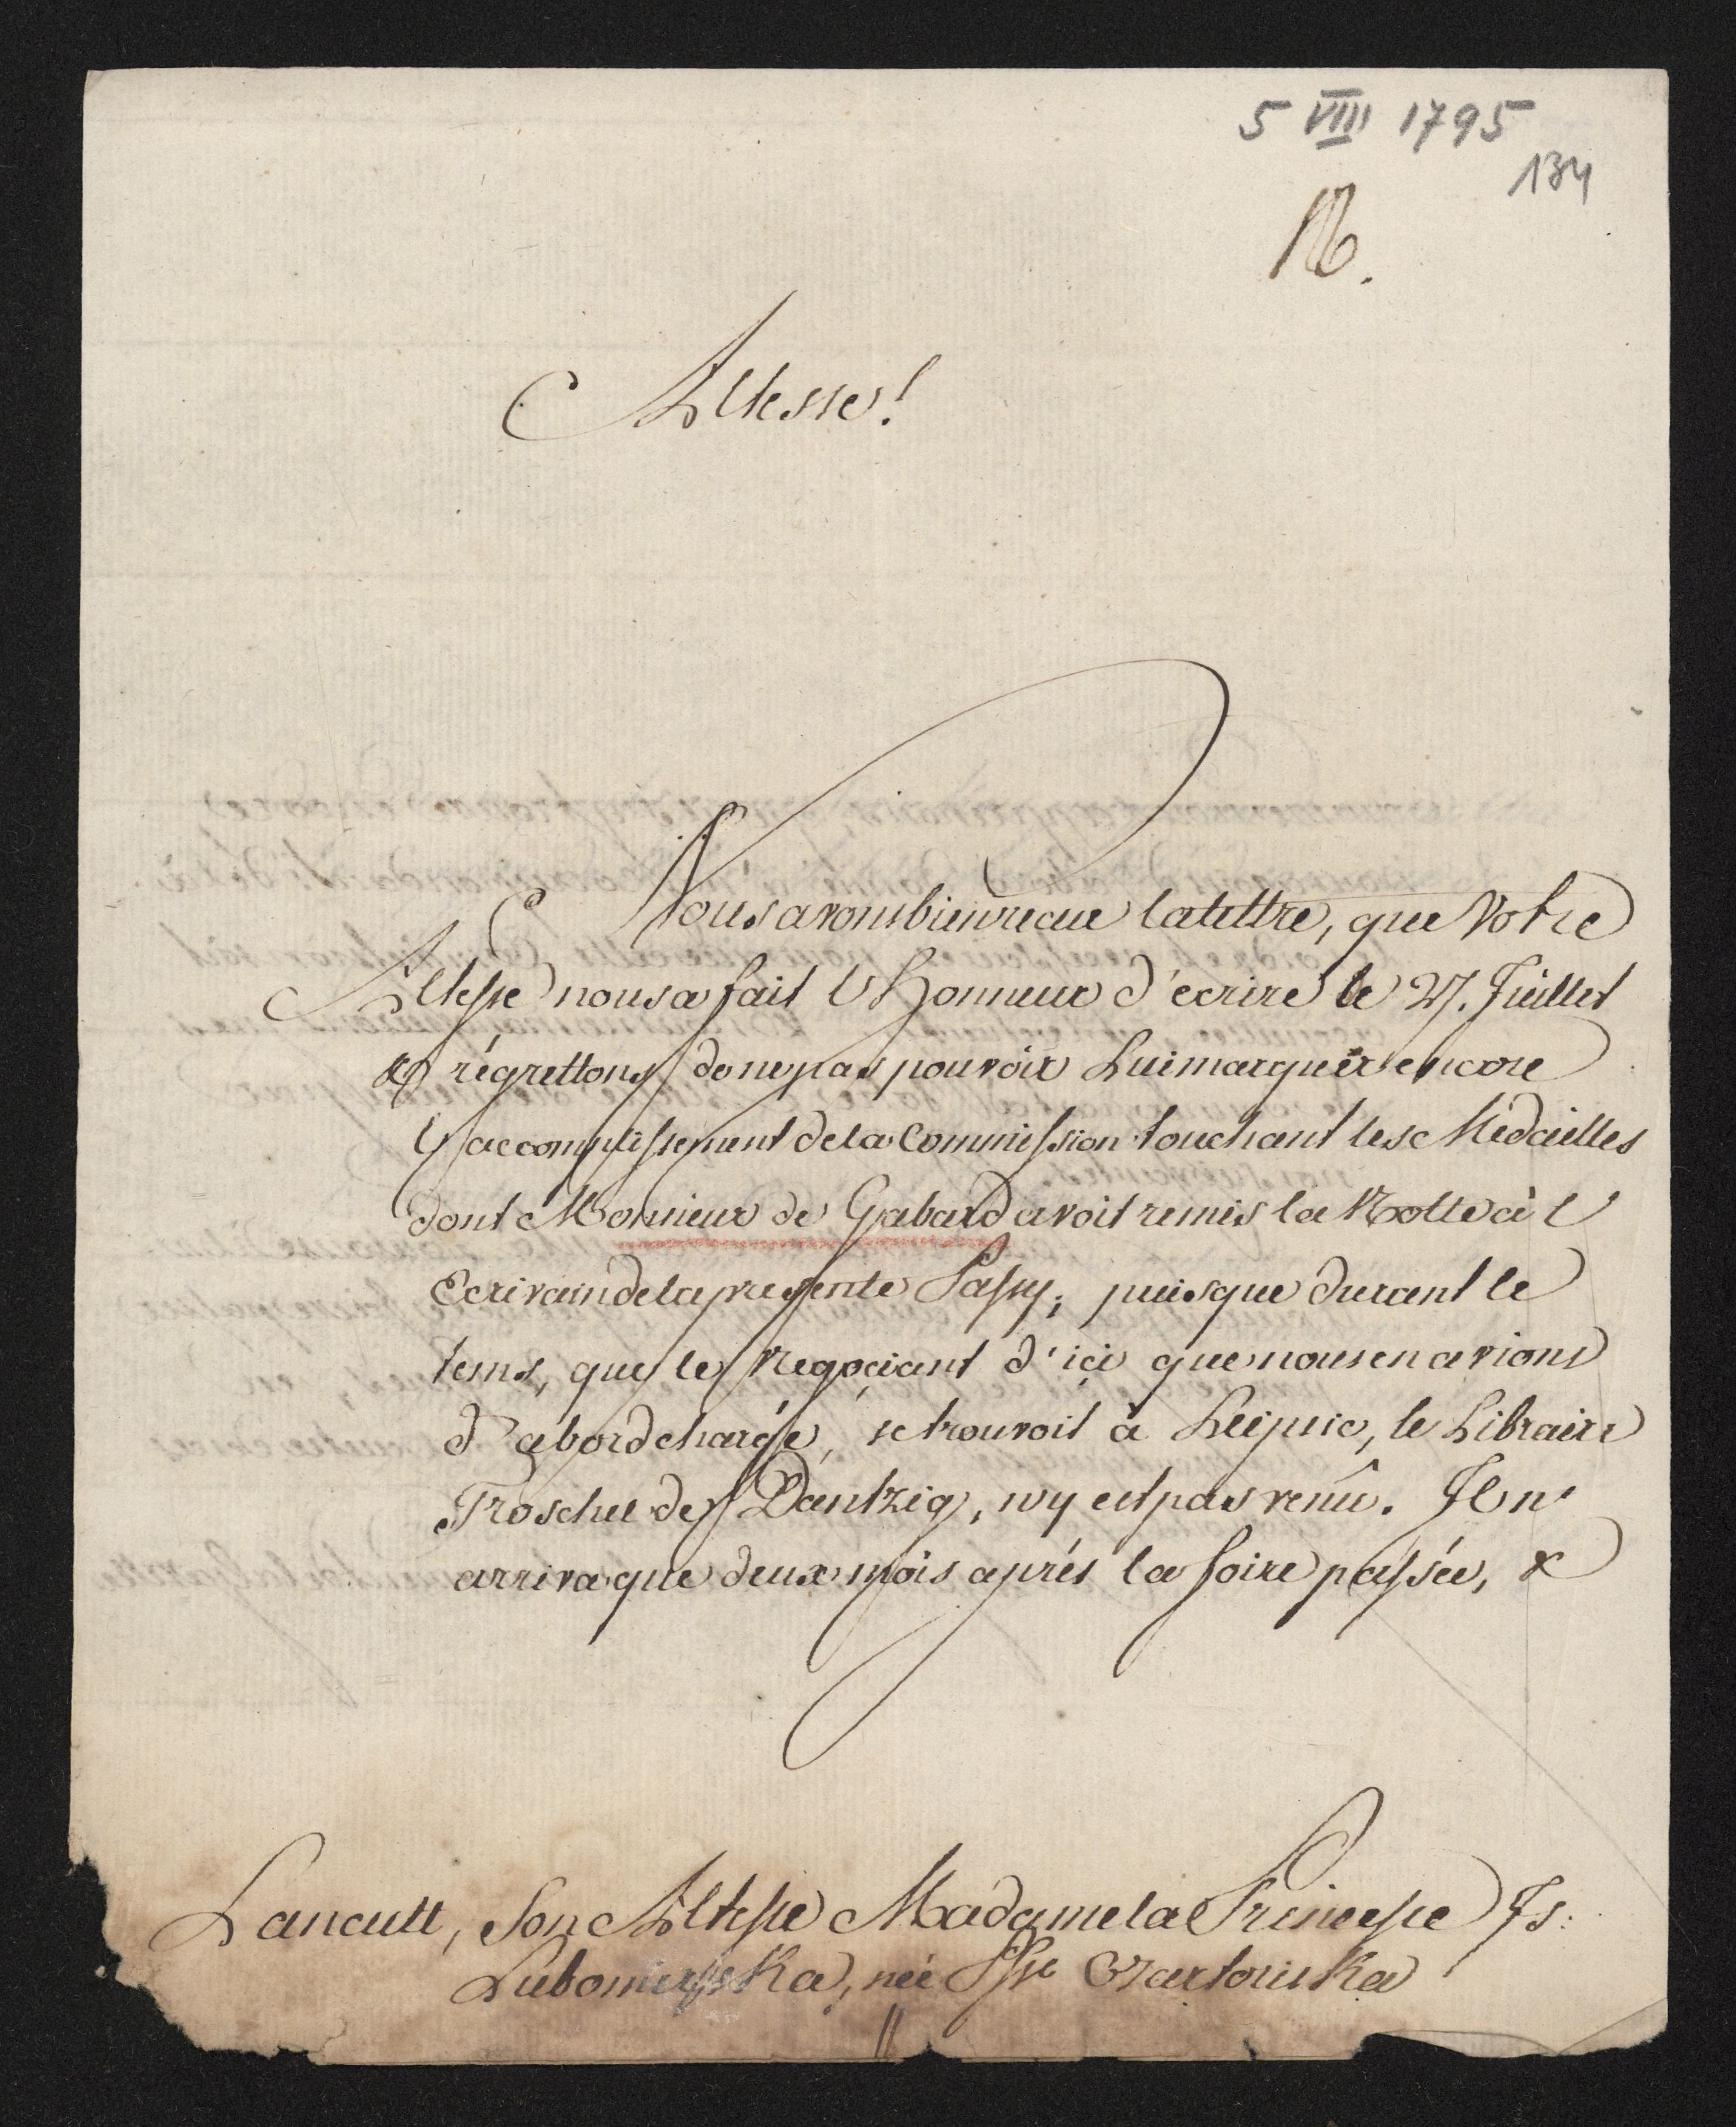 5 VIII 1795
134
Altesse!
Nous avons bien recue la lettre, que Votre
Altesse nous a fait l'Honneur d'écrire le 27. Juillet
& régrettons de ne pas pouvoir Lui marquér encore
l'accomplissement de la Commission touchant les Médailles
dont Monsieur de Gabard avoit remis la Notte à l'
Ecrivain de la presente Passy; puisque durant le
tems, que le Negoçiant d'içi que nous en avions
d'abord chargé, se trouvoit à Leipsic, le Libraire
Troschel de Dantzig, n'y est pas venû. Il n'
arriva que deux mois aprés la foire passée, &
Lancutt, Son Altesse Madame la Princesse Is:
Lubomirska, née Psse Czartoriska